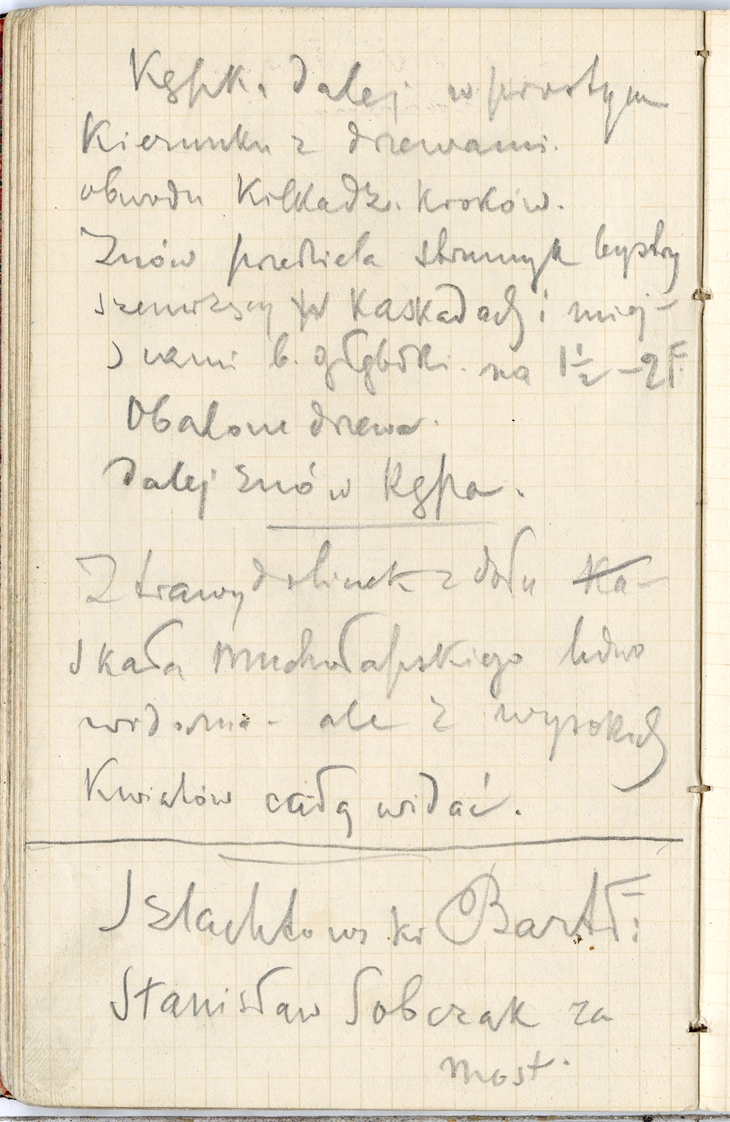 Kępk. dalej w prostym
kierunku z drzewami.
obwodu kilkadz. kroków.
Znów przedziela strumyk bystry
szemrzący w kaskadach i miej-
scami b. głęboki. na 1½ – 2 F.
Obalone drzewa.
Dalej znów kępa.
Z trawy dolinek z dołu Ka-
skała Muchołapskiego ledwo
widoma – ale z wysokich
Kwiatów całą widać.
Szlachtowski Bartł:
Stanisław Sobczak za
most.